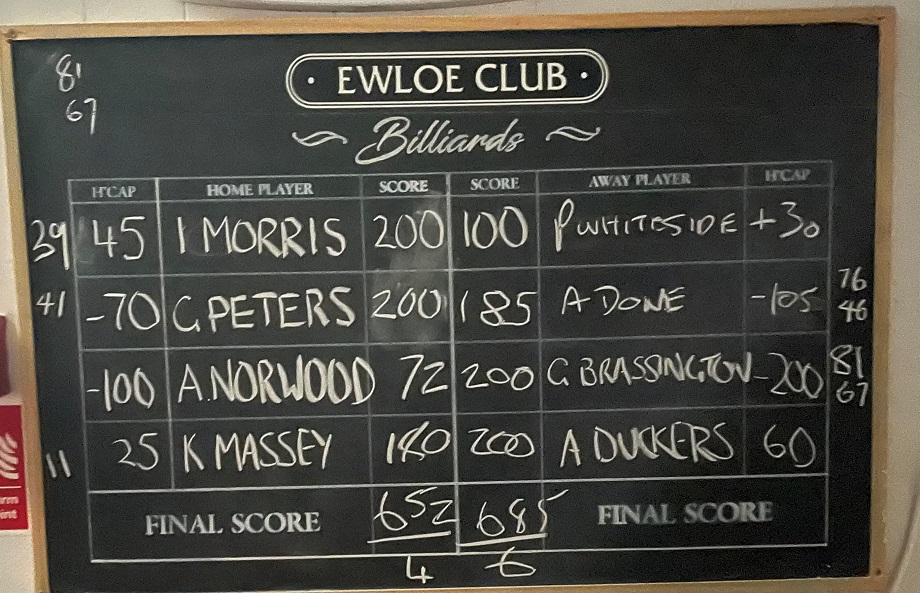 81
67
· EWLOE CLUB ·
Billiards
H'CAP HOME PLAYER SCORE SCORE AWAY PLAYER H'CAP
39 45 I MORRIS 200 100 P WHITESIDE +30
41 -70 G. PETERS 200 185 A DONE -105 76 46
-100 A. NORWOOD 72 200 G BRASSINGTON -200 81 67
11 25 K MASSEY 180 200 A DUCKERS 60
FINAL SCORE 652 685 FINAL SCORE
4 6